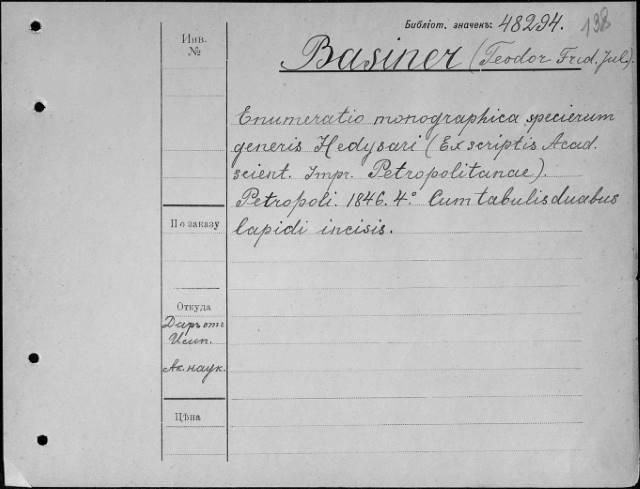 Библіот. значекъ: 48294. 138
Инв.
№
Basiner (Teodor Frid. Jul.).
Enumeratio monographica specierum
generis Hedysari (Ex scriptis Acad.
scient. Impr. Petropolitanae).
Petropoli. 1846. 4° Cum tabulis duabus
lapidi incisis.
По заказу
Откуда
Даръ отъ
Имп.
Ак. наук.
Цѣна